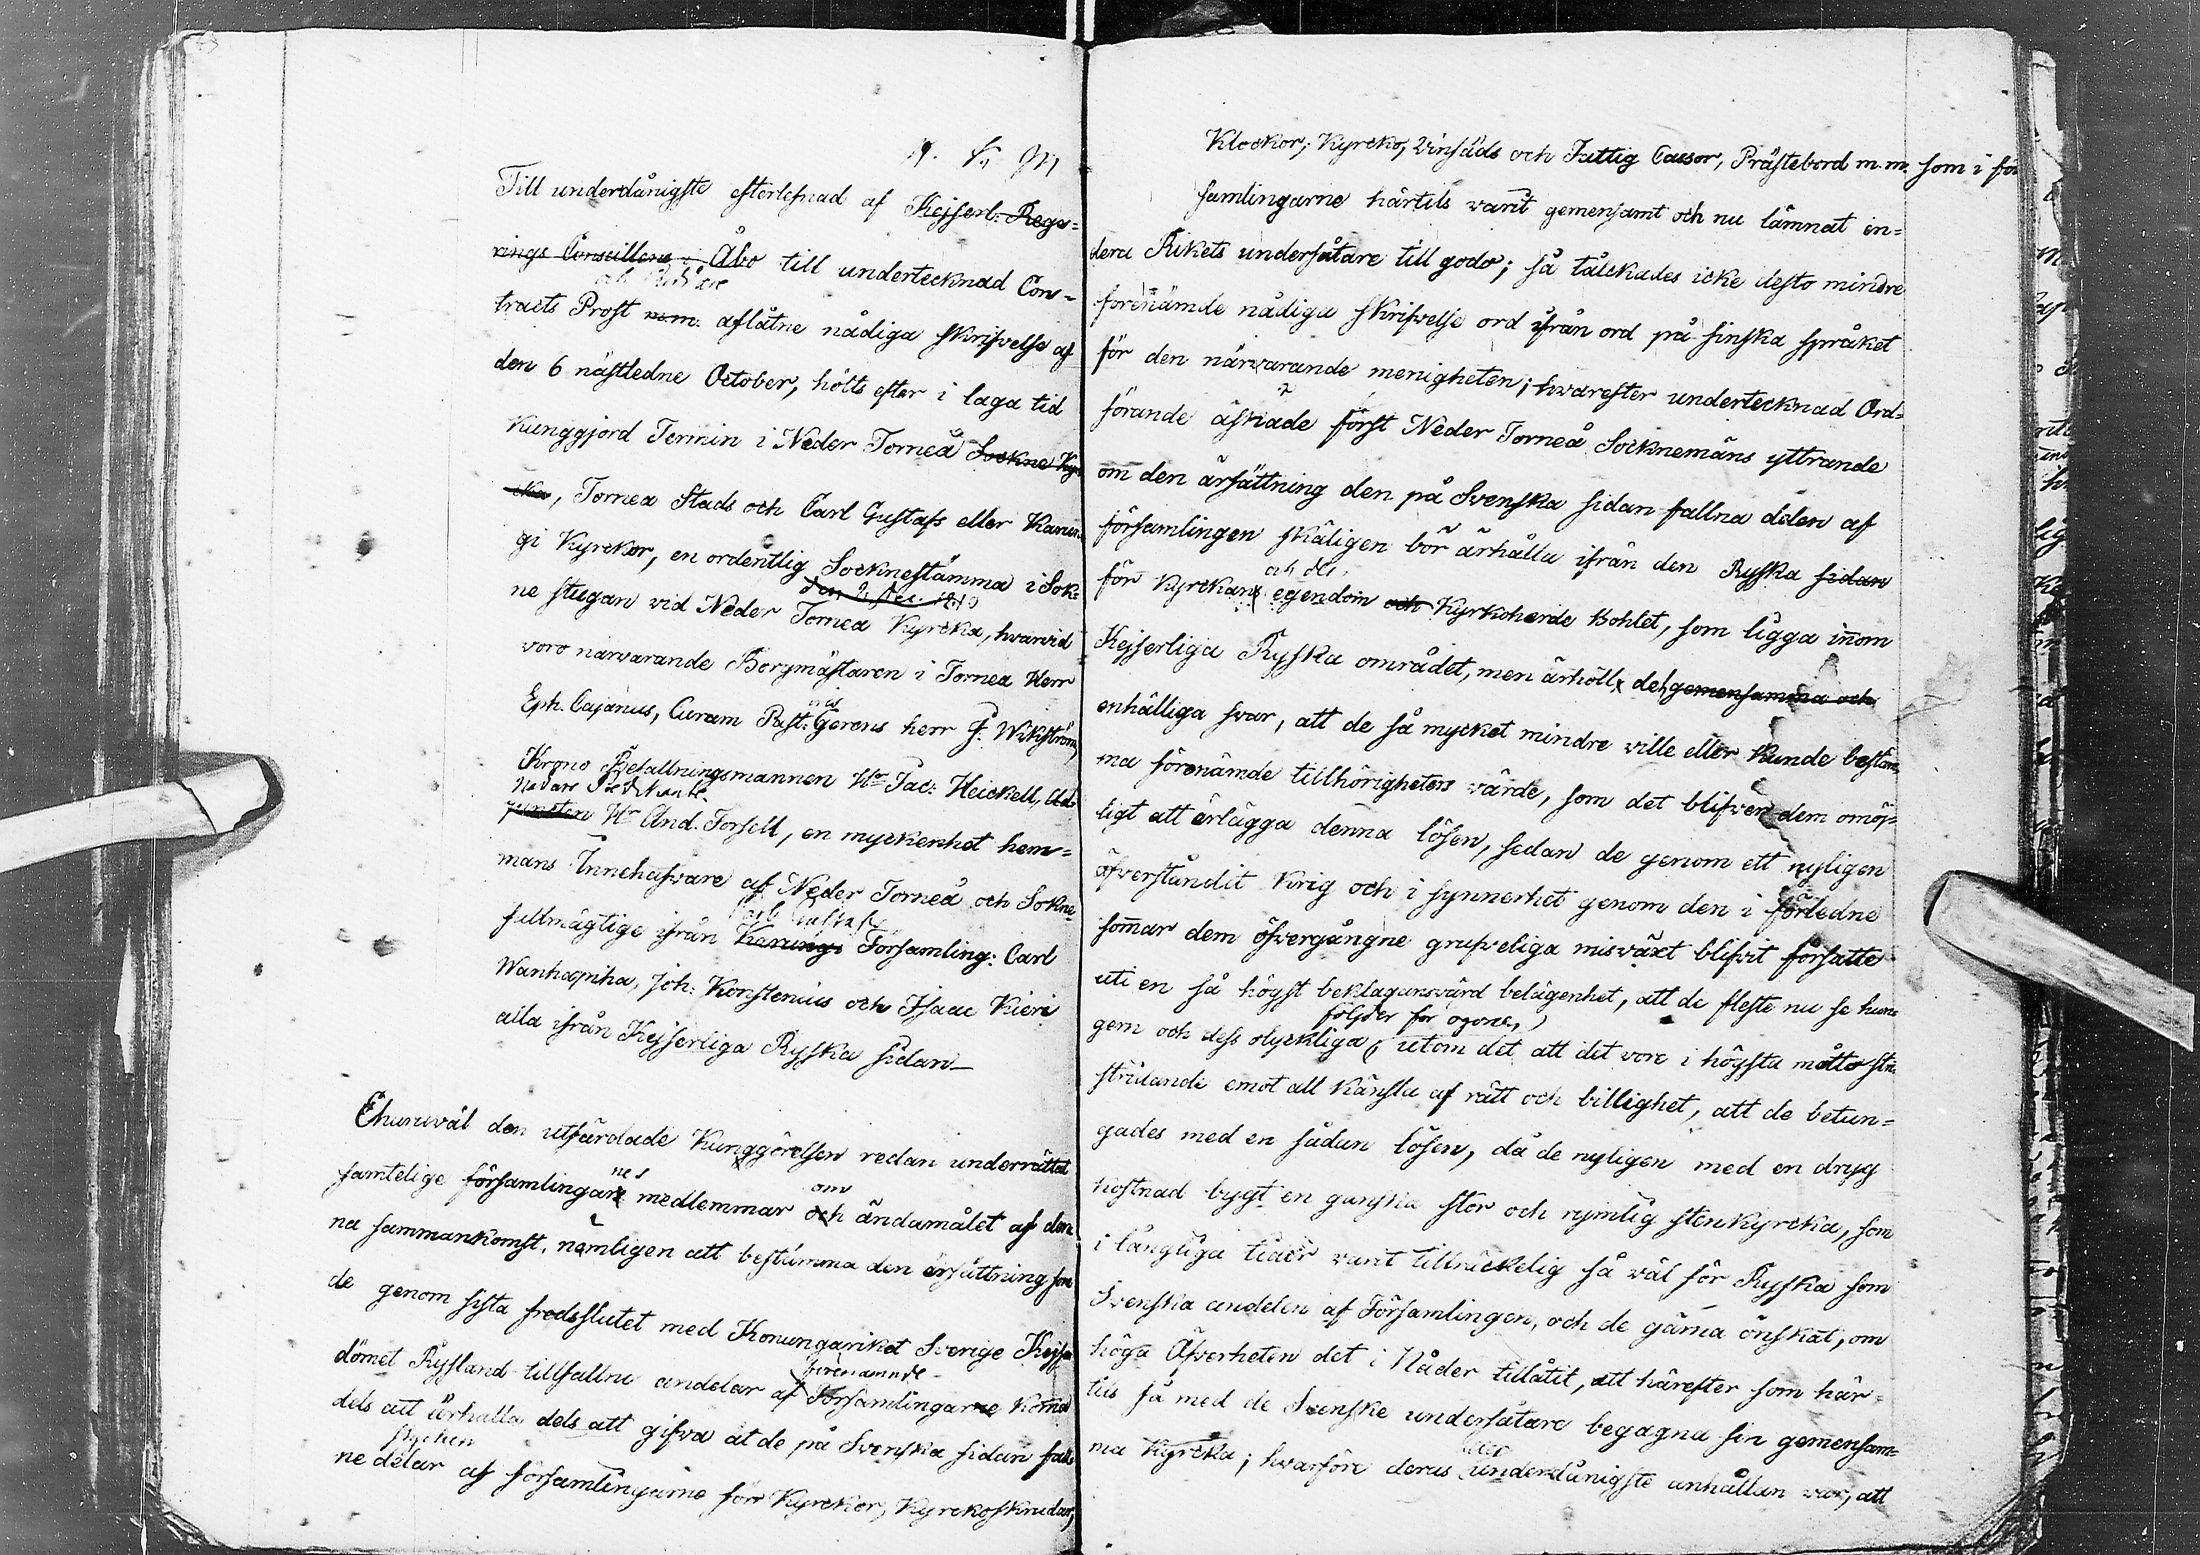 Till underdånigste efterlefnad af Kejserl. Rege=
rings Conseillens i Åbo till undertecknad Con=
och Riddare
tracts Prost m.m. aflåtne nådiga skrifvelse af
den 6 nästledne October, hölts efter i laga tid
Kunggjord Termin i Neder Torneå Sockne Kyr
cka, Torneå Stads och Carl Gustafs eller Karun
gi Kyrckor, en ordentlig Socknestämma i Sok=
den Dec. 1810
ne stugan vid Neder Torneå Kyrcka, hvarvid
voro närvarande Borgmästaren i Torneå Herr
Eph. Cajanus, Curam Past. Gerens herr J. Wikström,
Krono Befallningsmannen Hr Jac: Heickell, Ad
juncten Hr And. Forsell, en myckenhet hem=
mans Innehafvare af Neder Torneå och Sokne
Carl Gustafs
fullmägtige ifrån Karungi Församling: Carl
Wanhapiha, Joh: Korstenius och Isaac Kieri
alla ifrån Kejserliga Ryska sidan_
Ehuruväl den utfärdade Kunggörelsen redan underrättat
nes om
samtelige församlingar medlemmar och ändamålet af den
na sammankomst, nämligen att bestämma den ersättning som
de genom sista fredsslutet med Konungariket Sverige Kejsa
dömet Ryssland tillfallne andelar af Församlingarne komma
förenämnde
dels att ärhålla dels att gifva åt de på Svenska sidan fall
stycken
ne delar af församlingarne förr Kyrckor, Kyrckoskrudar,
Klockor, Kyrcko, Vinsäds och Fattig Cassor, Prästebord m.m. som i för
samlingarne härtils varit gemensamt och nu lämnat en=
dera Rikets undersåtare till godo; så tålckades icke desto mindre
förenämde nådiga skrifvelse ord ifrån ord på finska språket
för den närvarande menigheten; hvarefter undertecknad Ord=
förande äskade först Neder Torneå Socknemäns yttrande
om den ärsättning den på Svenska sidan fallna delen af
församlingen skäligen bör ärhålla ifrån den Ryska sidan
och des
för Kyrckans egendom och Kyrkoherde Bohlet, som ligga inom
Kejserliga Ryska området, men ärhöll det gemensamma och
enhälliga svar, att de så mycket mindre ville eller kunde bestäm
ma förenämde tillhörigheters värde, som det blifver dem omöj=
ligt att ärlägga denna lösen, sedan de genom ett nyligen
öfverståndit krig och i synnerhet genom den i förledne
sommar dem öfvergångne grufveliga misväxt blifvit försatte
uti en så högst beklagansvärd belägenhet, att de fleste nu se hun
följder för ögone,
gern och dess olyckliga utom det att det vore i högsta måtto
stridande emot all känsla af rätt och billighet, att de betun=
gades med en sådan lösen, då de nyligen med en dryg
kostnad bygt en ganska stor och rymlig stenkyrcka, som
i långliga tider varit tillräckelig så väl för Ryska som
Svenska andelen af Församlingen, och de gärna önskat, om
höga Öfverheten det i Nåder tillåtit, att härefter som här=
tils få med de Svenske undersåtare begagna sin gemensam=
ma Kyrcka; hvarföre deras underdånigste anhållan var, att